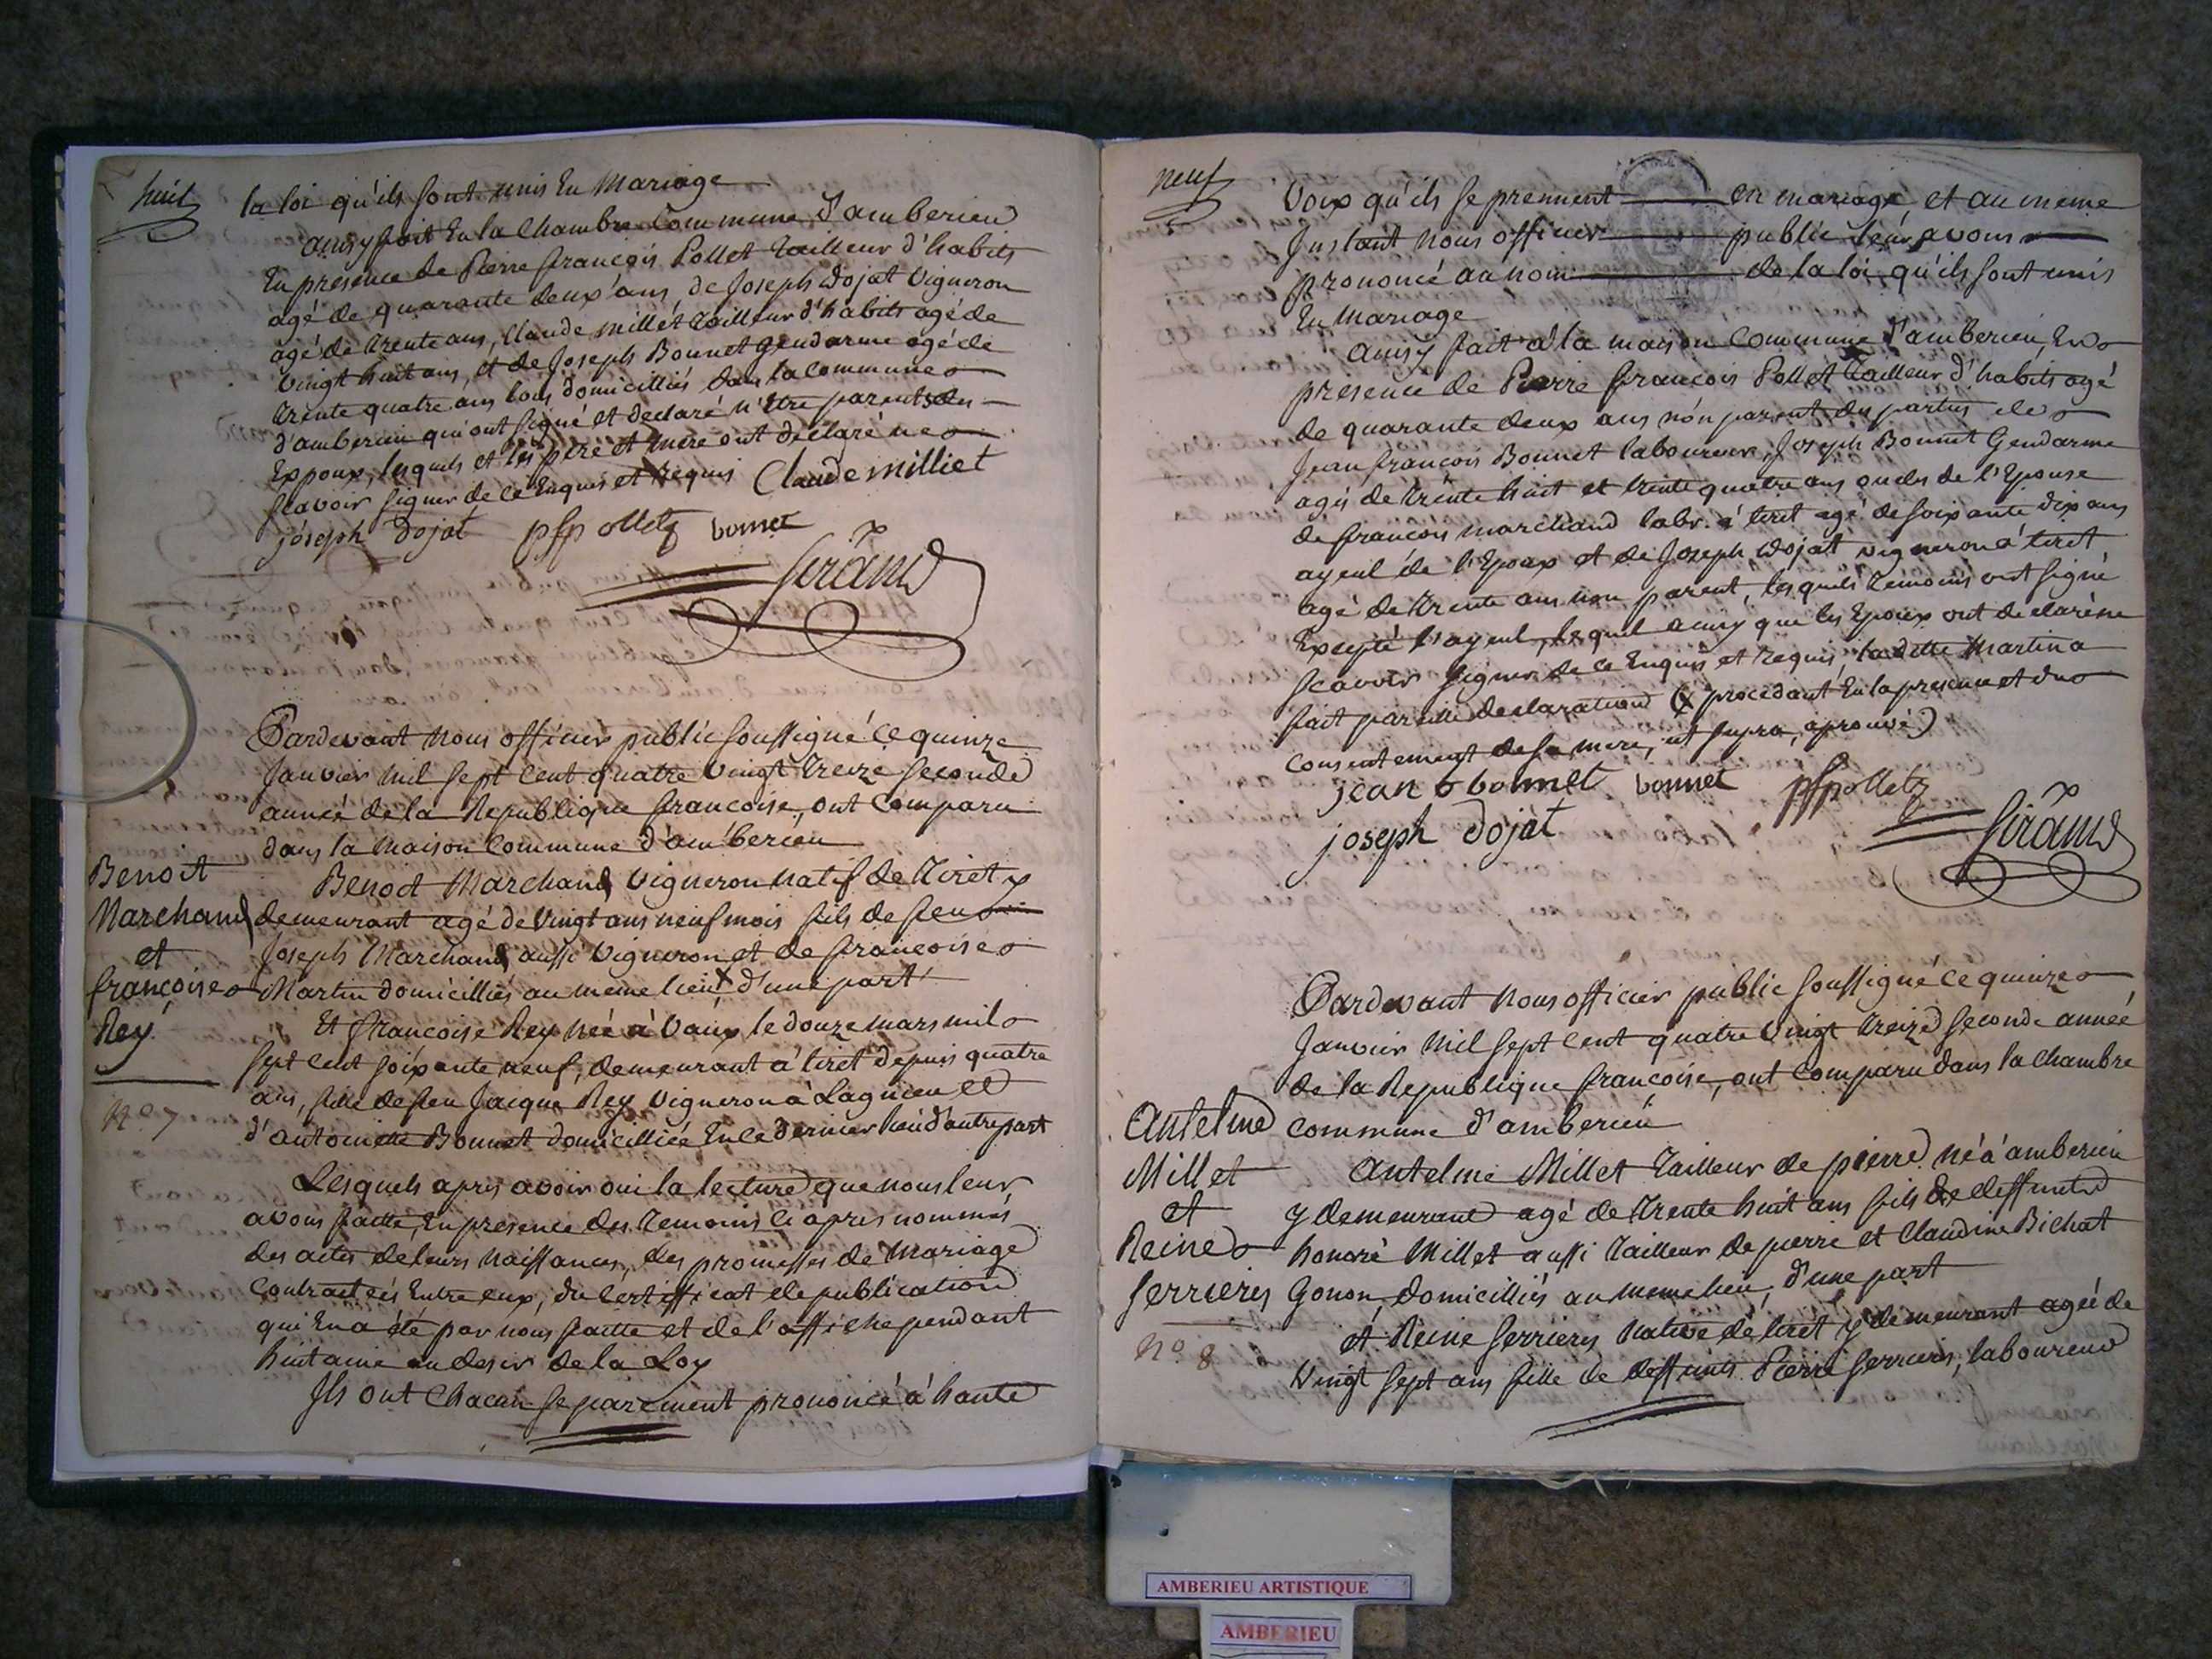 huit
la loi qu'ils sont unis En Mariage
ainsy fait En la Chambre Commune d'amberieu
En presence de Pierre françois Pollet tailleur d'habits
agé de quarante deux ans, de Joseph Dojat Vigneron
agé de trente ans, Claude millet tailleur d'habits agé de
vingt huit ans, et de Joseph Bonnet gendarme agé de
trente quatre ans tous domiciliés dans la commune
d'amberieu qui ont signé et declaré n'Etre parents des
Expoux, lesquels et les pere et mere ont declaré ne
scavoir signer de ce Enquis et Requis Claude milliet
joseph dojat pfpolletz bonnet
Sirand
Pardevant Nous officier public soussigné Ce quinze
Janvier mil sept Cent quatre vingt treize seconde
année de la Republique francoise, ont Comparu
dans la maison Commune d'amberieu
Benoit
Marchand
et
françoise
Rey
No 7
Benoit Marchand Vigneron natif de Tiret y
demeurant agé de Vingt ans neuf mois fils de feu
Joseph Marchand aussi Vigneron et de francoise
Martin domicilliés au meme lieu x d'une part
Et francoise Rey Neé à Vaux le douze mars mil
sept Cent soixante neuf, demeurant à tiret depuis quatre
ans, fille de feu Jacque Rey Vigneron à Lagnieu et
d'antoinette Bonnet domicilliée En ce dernier lieu d'autre part
Lesquels apres avoir oui la lecture que nous leur
avons faitte, En presence des temoins ci apres nommés
des actes de leurs Naissances, des promesses de Mariage
Contractées Entre eux, du Certifficat de publication
qui En a été par nous faitte et de l'affiche pendant
huitaine au desir de la Loy
Ils ont Chacun separement prononcé à haute
neuf
Voix qu'ils se prennent en mariage, et au meme
Instant nous officier public leur avons
prononcé au nom de la loi qu'ils sont unis
En Mariage
ainsy fait à la maison Commune d'amberieu, En
presence de Pierre françois Pollet tailleur d'habits agé
de quarante deux ans nón parent des parties de
Jean françois Bonnet laboureur, Joseph Bonnet Gendarme
agés de trente huit et trente quatre ans oncles de l'Epouse
de francois marchand labr. à tiret agé de soixante dix ans
ayeul de l'Epoux et de Joseph Dojat vigneron à tiret
agé de trente ans non parent, lesquels temoins ont signé
Excepté l'ayeul, lequel ainsy que les Epoux ont declaré ne
scavoir signer de ce Enquis et Requis, la ditte Martin a
fait pareille declaration (x procedant En la presence et du
consentement de sa mere, ut supra, aprouvé)
jean f bonnet bonnet pfpolletz
joseph dojat
Sirand
Pardevant Nous officier public soussigné ce quinze
Janvier Mil sept Cent quatre Vingt treize seconde année
de la Republique françoise, ont Comparu dans la Chambre
commune d'amberieu
Antelme
Millet
et
Reine
serrieres
No 8
Antelme Millet tailleur de pierre né à amberieu
y demeurant agé de trente huit ans fils de deffunt
honoré Millet aussi tailleur de pierre et Claudine Bichat
Gonon, domicilliés au meme lieu, d'une part
et Reine serrieres Native de tiret y demeurant ageé de
Vingt sept ans fille de deffunts Pierre serrieres, laboureur
AMBERIEU ARTISTIQUE
AMBERIEU